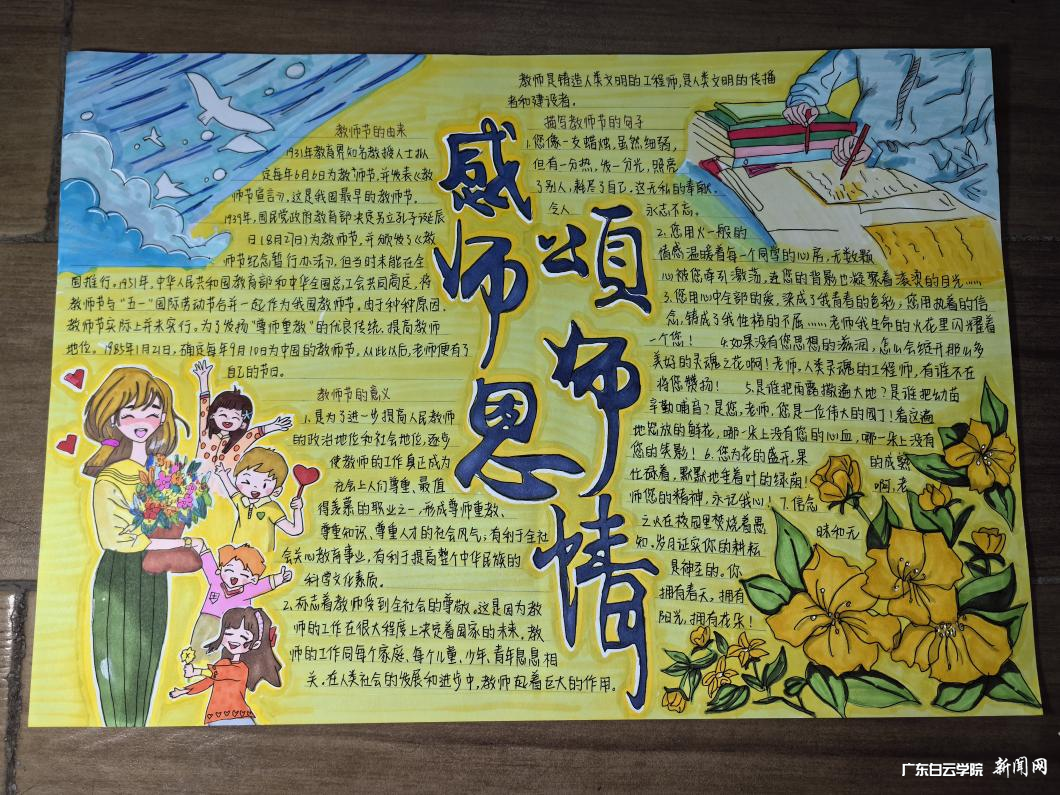 感师恩
颂师情
教师节的由来
1931年教育界知名教授人士拟
定每年6月6为教师节,并发表《教
师节宣言》,这是我国最早的教师节。
1939年,国民党政府教育部决定另立孔子诞辰
日(8月27日)为教师节,并颁发了《教
师节纪念暂行办法》,但当时未能在全
国推行。1951年,中华人民共和国教育部和中华全国总工会共同商定,将
教师节与“五一”国际劳动节合并一起作为我国教师节。由于种种原因,
教师节实际上并未实行。为了发扬“尊师重教”的优良传统,提高教师
地位。1985年1月21日,确定每年9月10日为中国的教师节。从此以后,老师便有了
自己的节日。
教师节的意义
1、是为了进一步提高人民教师
的政治地位和社会地位,逐步
使教师的工作真正成为
社会上人们尊重、最值
得羡慕的职业之一,形成尊师重教、
尊重知识、尊重人才的社会风气;有利于全社
会关心教育事业,有利于提高整个中华民族的
科学文化素质。
2、标志着教师受到全社会的尊敬。这是因为教
师的工作在很大程度上决定着国家的未来,教
师的工作同每个家庭、每个儿童、少年、青年息息相
关。在人类社会的发展和进步中,教师起着巨大的作用。
教师是铸造人类文明的工程师,是人类文明的传播
者和建设者。
描写教师节的句子
1.您像一支蜡烛,虽然细弱,
但有一分热,发一分光,照亮
了别人,耗尽了自己。这无私的奉献,
令人 永志不忘。
2.您用火一般的
情感温暖着每一个同学的心房,无数颗
心被您牵引激荡,连您的背影也凝聚着滚烫的目光……
3.您用心中全部的爱,染成了我青春的色彩,您用执着的信
念,铸成了我性格的不屈……老师我生命的火花里闪耀着
一个您! 4.如果没有您思想的滋润,怎么会绽开那么多
美好的灵魂之花啊!老师,人类灵魂的工程师,有谁不在
将您赞扬! 5.是谁把雨露撒遍大地?是谁把幼苗
辛勤哺育?是您,老师,您是一位伟大的园丁!看这遍
地怒放的鲜花,哪一朵上没有您的心血,哪一朵上没有
您的笑影! 6.您为花的盛开,果 的成熟
忙碌着,默默地垂着叶的绿荫! 啊,老
师您的精神,永记我心! 7.信念
之火在校园里焚烧着愚 昧和无
知。岁月证实你的耕耘
是神圣的。你
拥有春天,拥有
阳光,拥有花朵!
广东白云学院 新闻网